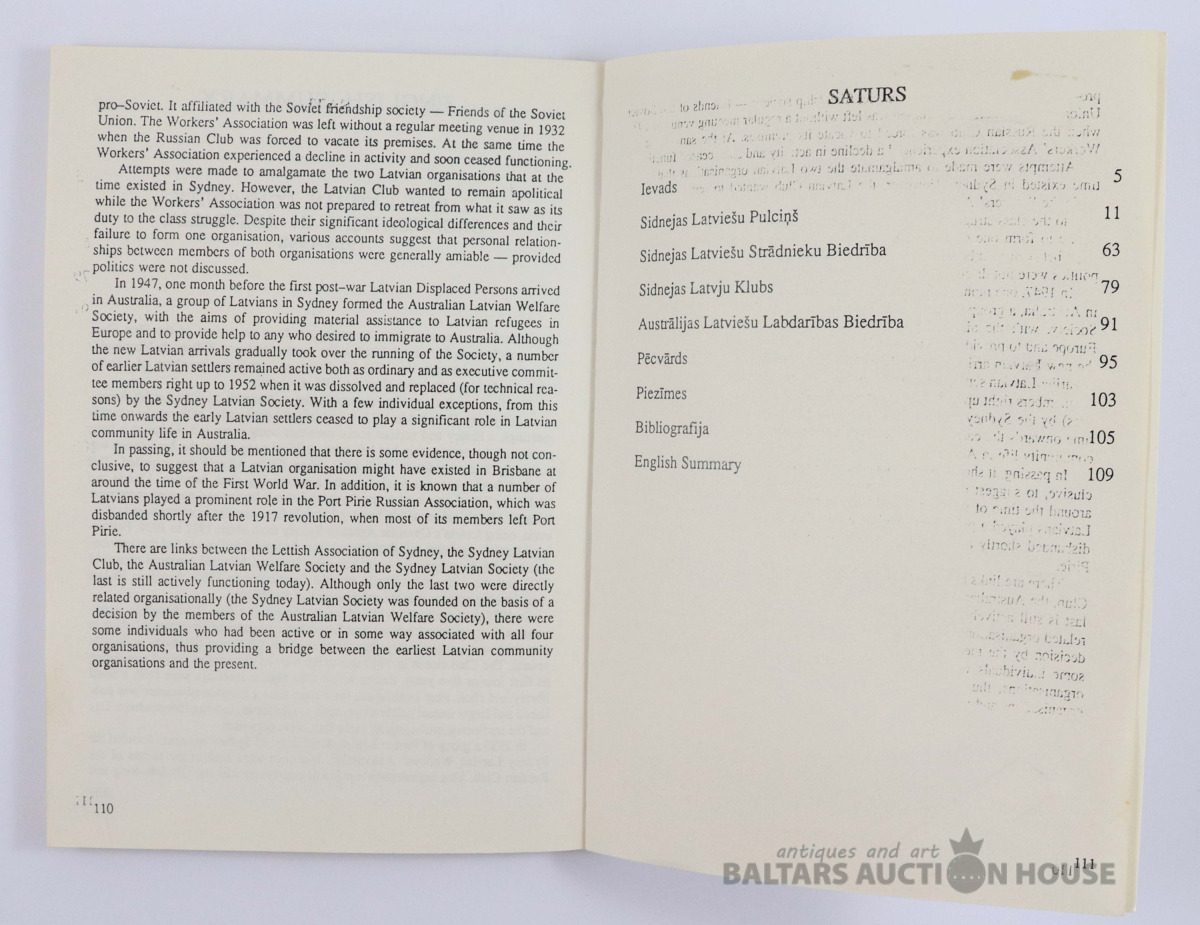 pro–Soviet. It affiliated with the Soviet friendship society — Friends of the Soviet
Union. The Workers' Association was left without a regular meeting venue in 1932
when the Russian Club was forced to vacate its premises. At the same time the
Workers' Association experienced a decline in activity and soon ceased functioning.
Attempts were made to amalgamate the two Latvian organisations that at the
time existed in Sydney. However, the Latvian Club wanted to remain apolitical
while the Workers' Association was not prepared to retreat from what it saw as its
duty to the class struggle. Despite their significant ideological differences and their
failure to form one organisation, various accounts suggest that personal relation-
ships between members of both organisations were generally amiable — provided
politics were not discussed.
In 1947, one month before the first post–war Latvian Displaced Persons arrived
in Australia, a group of Latvians in Sydney formed the Australian Latvian Welfare
Society, with the aims of providing material assistance to Latvian refugees in
Europe and to provide help to any who desired to immigrate to Australia. Although
the new Latvian arrivals gradually took over the running of the Society, a number
of earlier Latvian settlers remained active both as ordinary and as executive commit-
tee members right up to 1952 when it was dissolved and replaced (for technical rea-
sons) by the Sydney Latvian Society. With a few individual exceptions, from this
time onwards the early Latvian settlers ceased to play a significant role in Latvian
community life in Australia.
In passing, it should be mentioned that there is some evidence, though not con-
clusive, to suggest that a Latvian organisation might have existed in Brisbane at
around the time of the First World War. In addition, it is known that a number of
Latvians played a prominent role in the Port Pirie Russian Association, which was
disbanded shortly after the 1917 revolution, when most of its members left Port
Pirie.
There are links between the Lettish Association of Sydney, the Sydney Latvian
Club, the Australian Latvian Welfare Society and the Sydney Latvian Society (the
last is still actively functioning today). Although only the last two were directly
related organisationally (the Sydney Latvian Society was founded on the basis of a
decision by the members of the Australian Latvian Welfare Society), there were
some individuals who had been active or in some way associated with all four
organisations, thus providing a bridge between the earliest Latvian community
organisations and the present.
110
SATURS
Ievads 5
Sidnejas Latviešu Pulciņš 11
Sidnejas Latviešu Strādnieku Biedrība 63
Sidnejas Latvju Klubs 79
Austrālijas Latviešu Labdarības Biedrība 91
Pēcvārds 95
Piezīmes 103
Bibliografija 105
English Summary 109
111
antiques and art
BALTARS AUCTION HOUSE